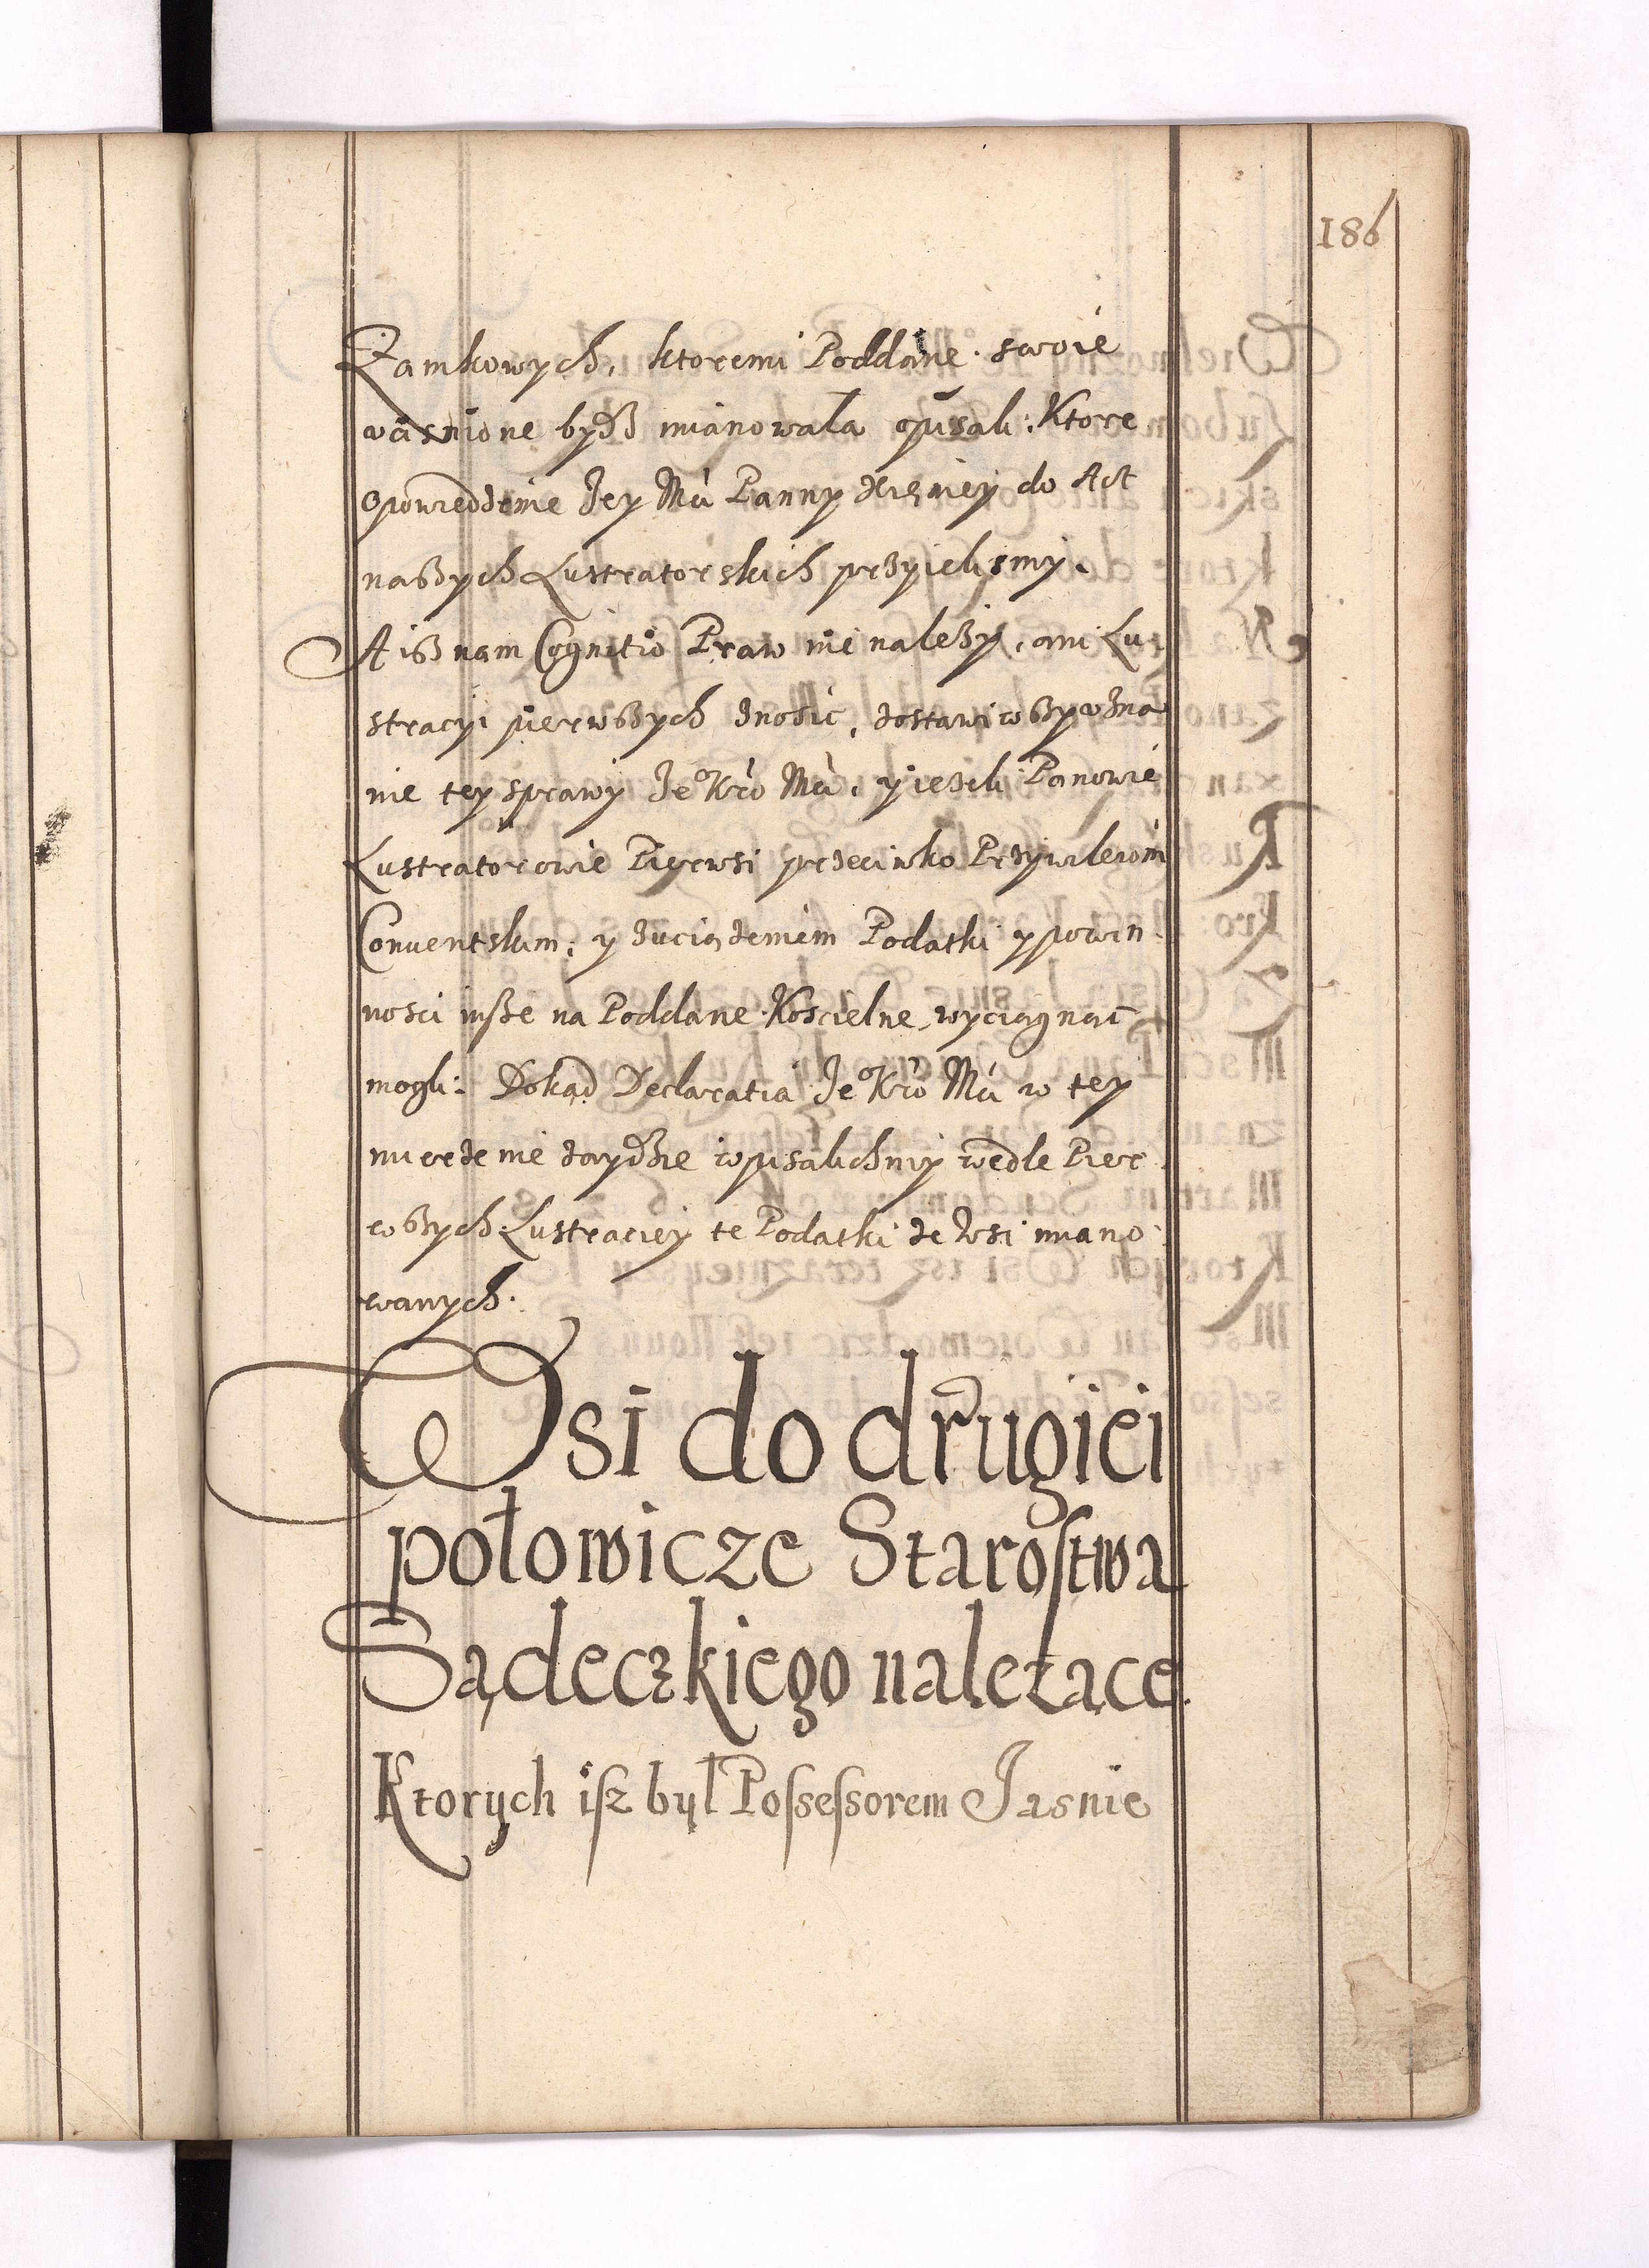 186
Zamkowych, ktoremi Poddane swoie
ucisnione bydz mianowała opisali: Ktore
opowiedzenie Jey Mci Panny Xięniey do Act
naszych Lustratorskich przyielismy.
A isz nam Cognitio Praw nie nalezy, ani Lu-
stracyi pierwszych znosic, zostawiwszy uzna
nie tey sprawy Je° Kró Mći, y iesli Panowie
Lustratorowie Pierwsi przeciwko Przywileiom
Conuentskim, y zuciązeniem Podatki y powin-
nosci insze na Poddane Koscielne wyciągnąc
mogli: Dokąd Declaratia Je° Kró Mći w tey
mierze nie zaydzie wpisalichmy wedle Pier-
wszych Lustraciey te Podatki ze wsi miano-
wanych.
Wsi do drugiei
połowicze Starostwa
Sądeczkiego nalezące
Ktorych isz był Possessorem Jasnie